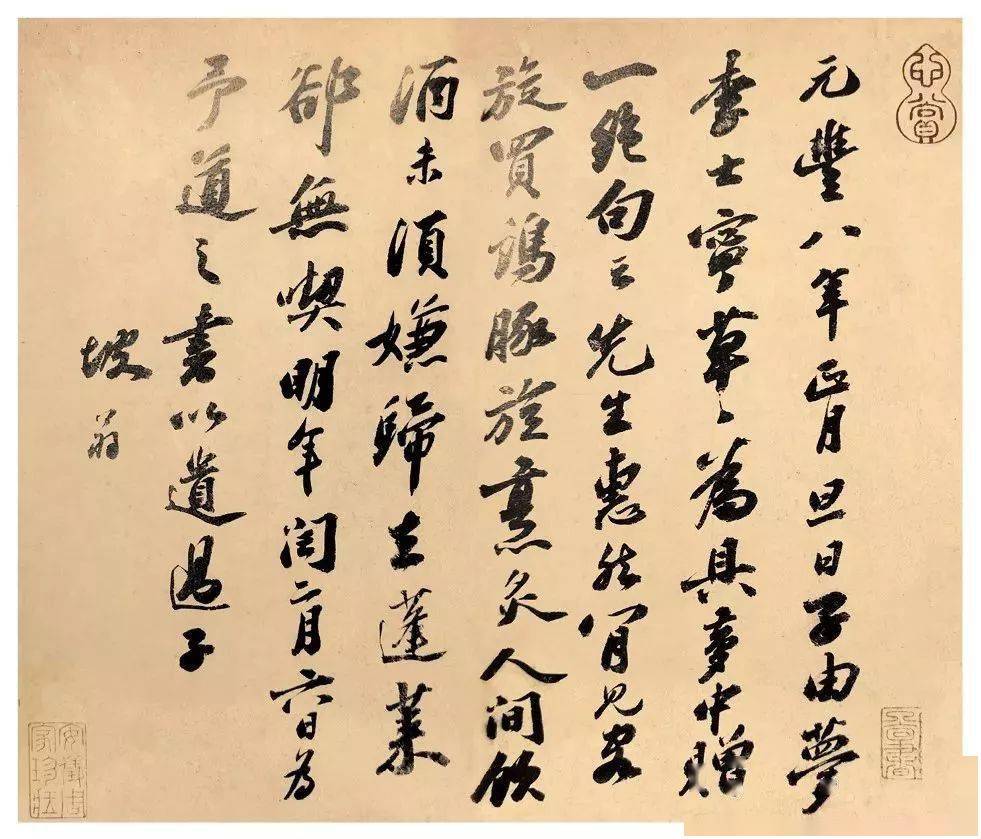 心賞
元豐八年正月旦日子由夢
李士寧草草為具夢中贈
一絕句云先生惠然肯見客
旋買鷄豚旋烹炙人間飲
酒未須嫌歸去蓬萊
卻無喫明年閏二月六日為
予道之書以遺過子
坡翁
安儀周家珍藏